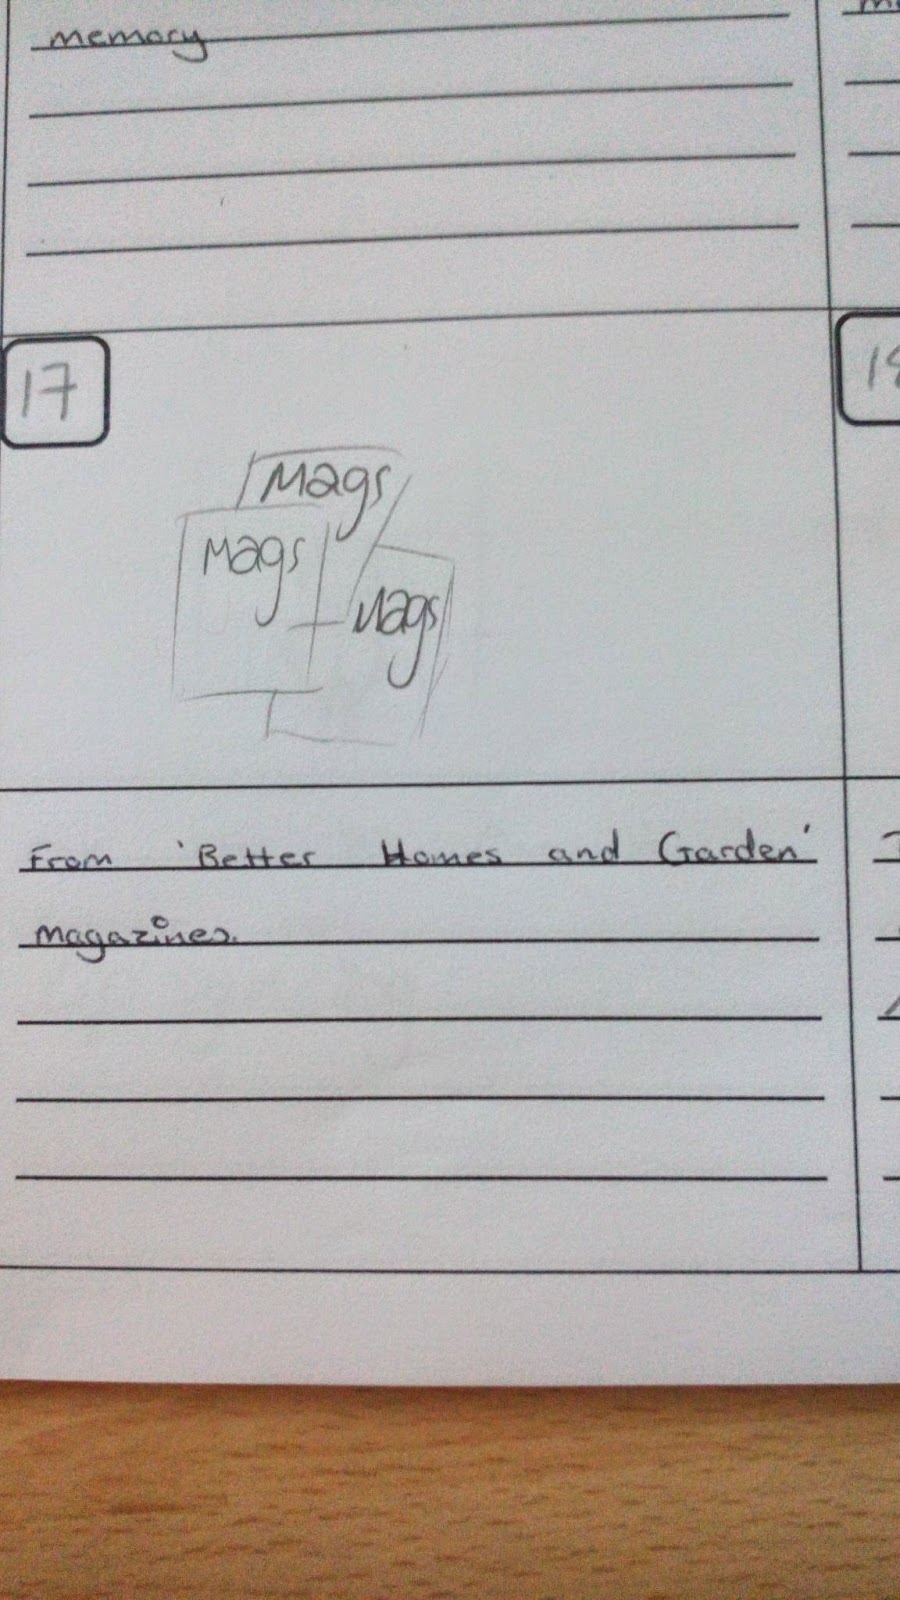 memory
17
Mags
Mags
Mags
From 'Better Homes and Garden'
magazines.